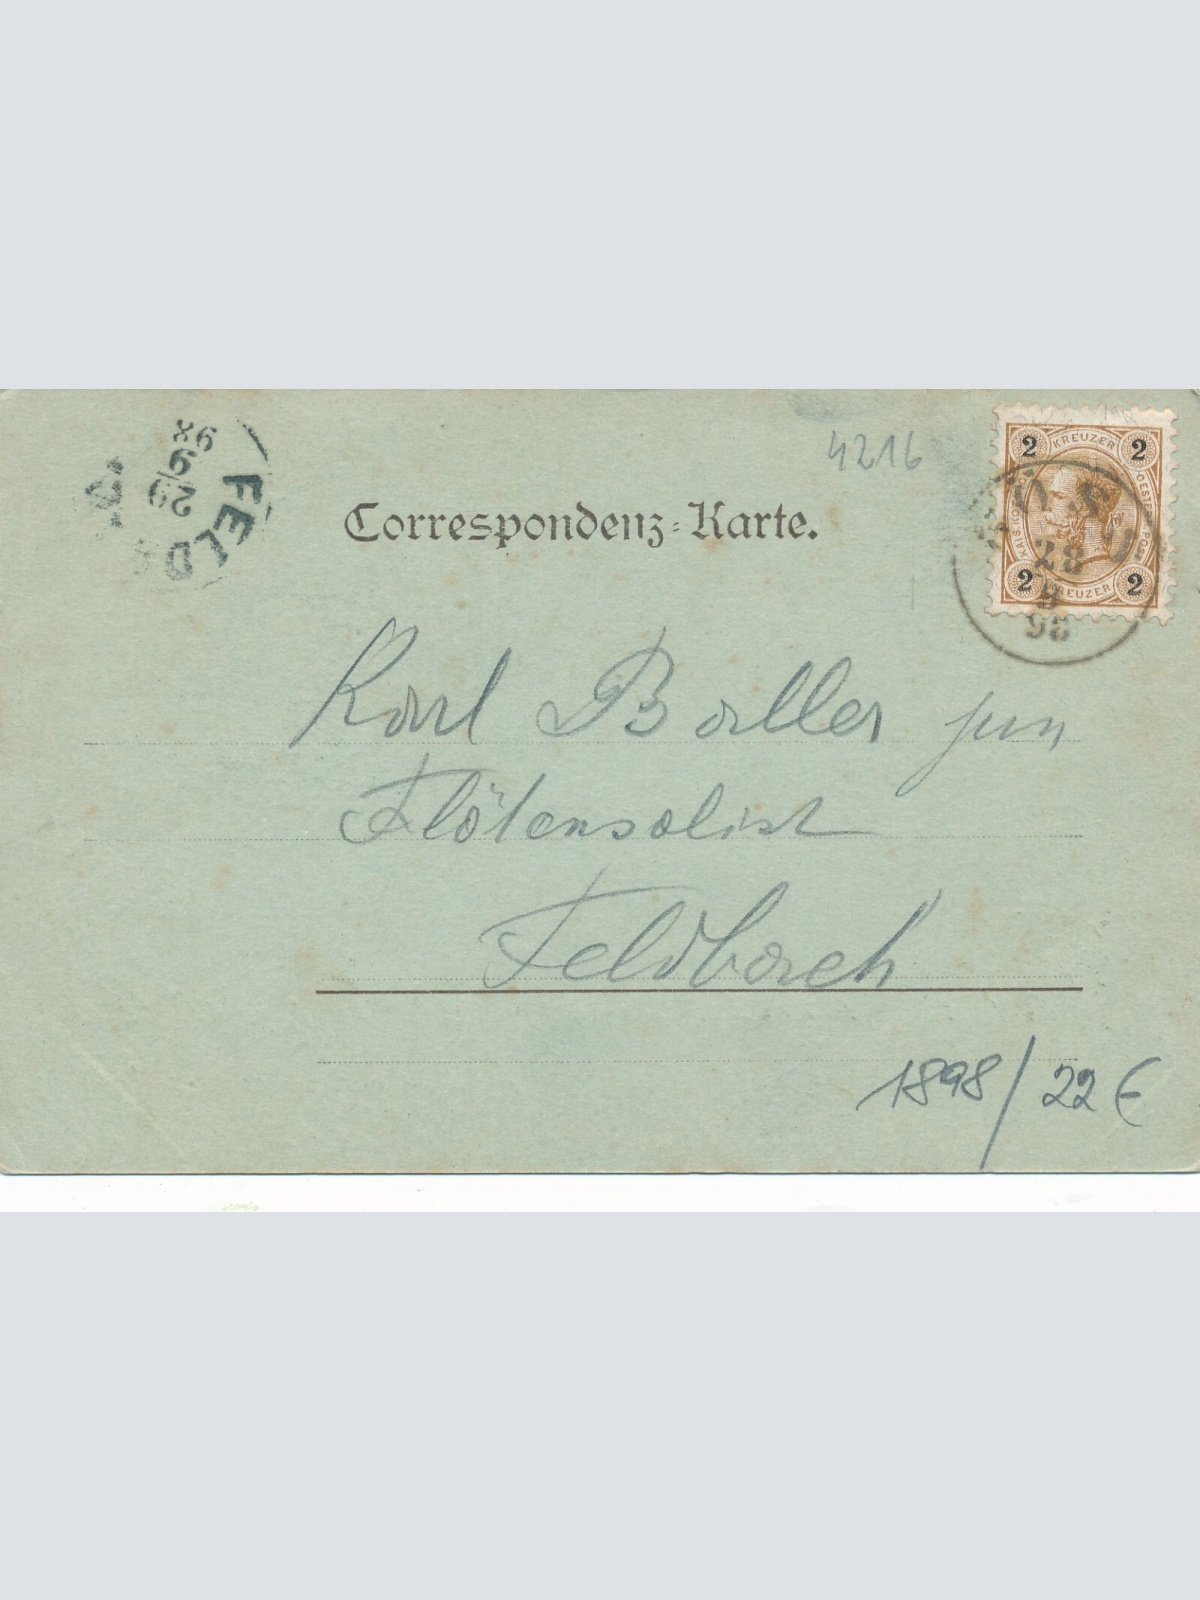 4216
Correspondenz-Karte.
2 KREUZER 2
2 KREUZER 2
28
9
98
FELDB
29
9
98
Karl Baller jun
Flötensolist
Feldbach
1898/22€